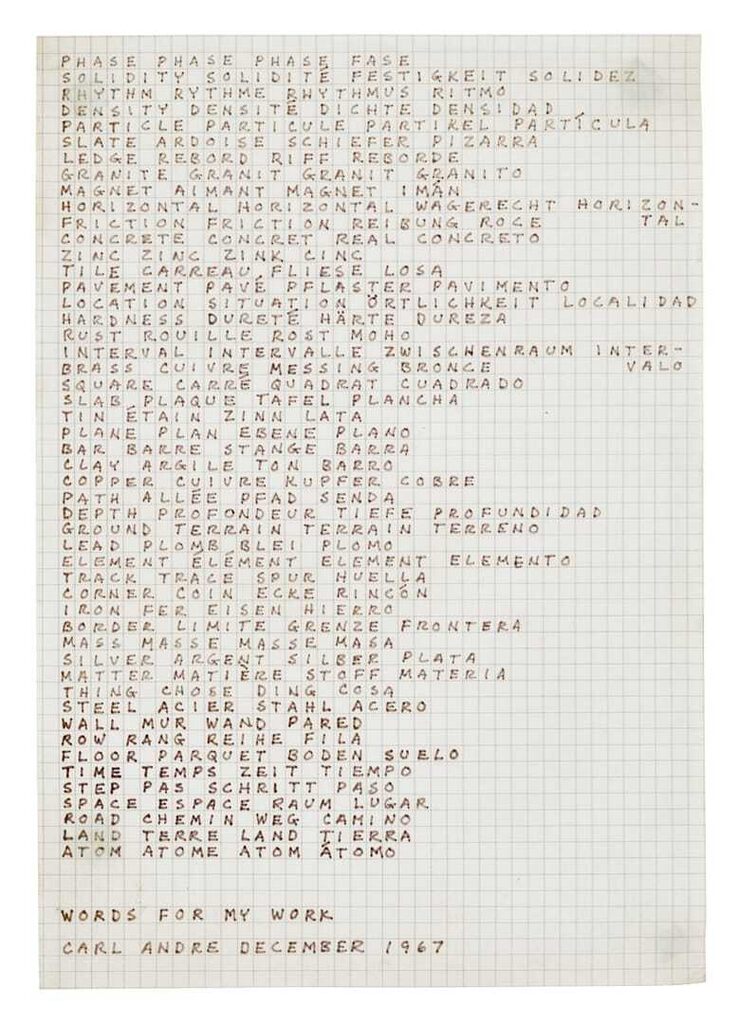 PHASE PHASE PHASE FASE
SOLIDITY SOLIDITÉ FESTIGKEIT SOLIDEZ
RHYTHM RYTHME RHYTHMUS RITMO
DENSITY DENSITÉ DICHTE DENSIDAD
PARTICLE PARTICULE PARTIKEL PARTÍCULA
SLATE ARDOISE SCHIEFER PIZARRA
LEDGE REBORD RIFF REBORDE
GRANITE GRANIT GRANIT GRANITO
MAGNET AIMANT MAGNET IMÁN
HORIZONTAL HORIZONTAL WAGERECHT HORIZON-
FRICTION FRICTION REIBUNG ROCE TAL
CONCRETE CONCRET REAL CONCRETO
ZINC ZINC ZINK CINC
TILE CARREAU FLIESE LOSA
PAVEMENT PAVÉ PFLASTER PAVIMENTO
LOCATION SITUATION ÖRTLICHKEIT LOCALIDAD
HARDNESS DURETÉ HÄRTE DUREZA
RUST ROUILLE ROST MOHO
INTERVAL INTERVALLE ZWISCHENRAUM INTER-
BRASS CUIVRE MESSING BRONCE VALO
SQUARE CARRÉ QUADRAT CUADRADO
SLAB PLAQUE TAFEL PLANCHA
TIN ÉTAIN ZINN LATA
PLANE PLAN EBENE PLANO
BAR BARRE STANGE BARRA
CLAY ARGILE TON BARRO
COPPER CUIVRE KUPFER COBRE
PATH ALLÉE PFAD SENDA
DEPTH PROFONDEUR TIEFE PROFUNDIDAD
GROUND TERRAIN TERRAIN TERRENO
LEAD PLOMB BLEI PLOMO
ELEMENT ÉLÉMENT ELEMENT ELEMENTO
TRACK TRACE SPUR HUELLA
CORNER COIN ECKE RINCÓN
IRON FER EISEN HIERRO
BORDER LIMITE GRENZE FRONTERA
MASS MASSE MASSE MASA
SILVER ARGENT SILBER PLATA
MATTER MATIÈRE STOFF MATERIA
THING CHOSE DING COSA
STEEL ACIER STAHL ACERO
WALL MUR WAND PARED
ROW RANG REIHE FILA
FLOOR PARQUET BODEN SUELO
TIME TEMPS ZEIT TIEMPO
STEP PAS SCHRITT PASO
SPACE ESPACE RAUM LUGAR
ROAD CHEMIN WEG CAMINO
LAND TERRE LAND TIERRA
ATOM ATOME ATOM ÁTOMO
WORDS FOR MY WORK
CARL ANDRE DECEMBER 1967